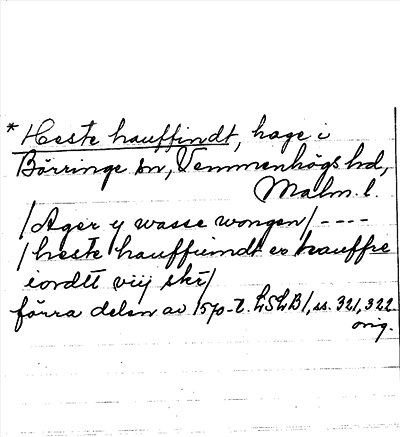 * Heste hauffindt, hage i
Börringe sn, Vemmenhögs hd,
Malm. l.
/Ager y wasse wongen/ ----
/heste hauffuindt er hauffre
iordtt viij skr/
förra delen av 1570-t. LSLB1, ss. 321, 322.
orig.